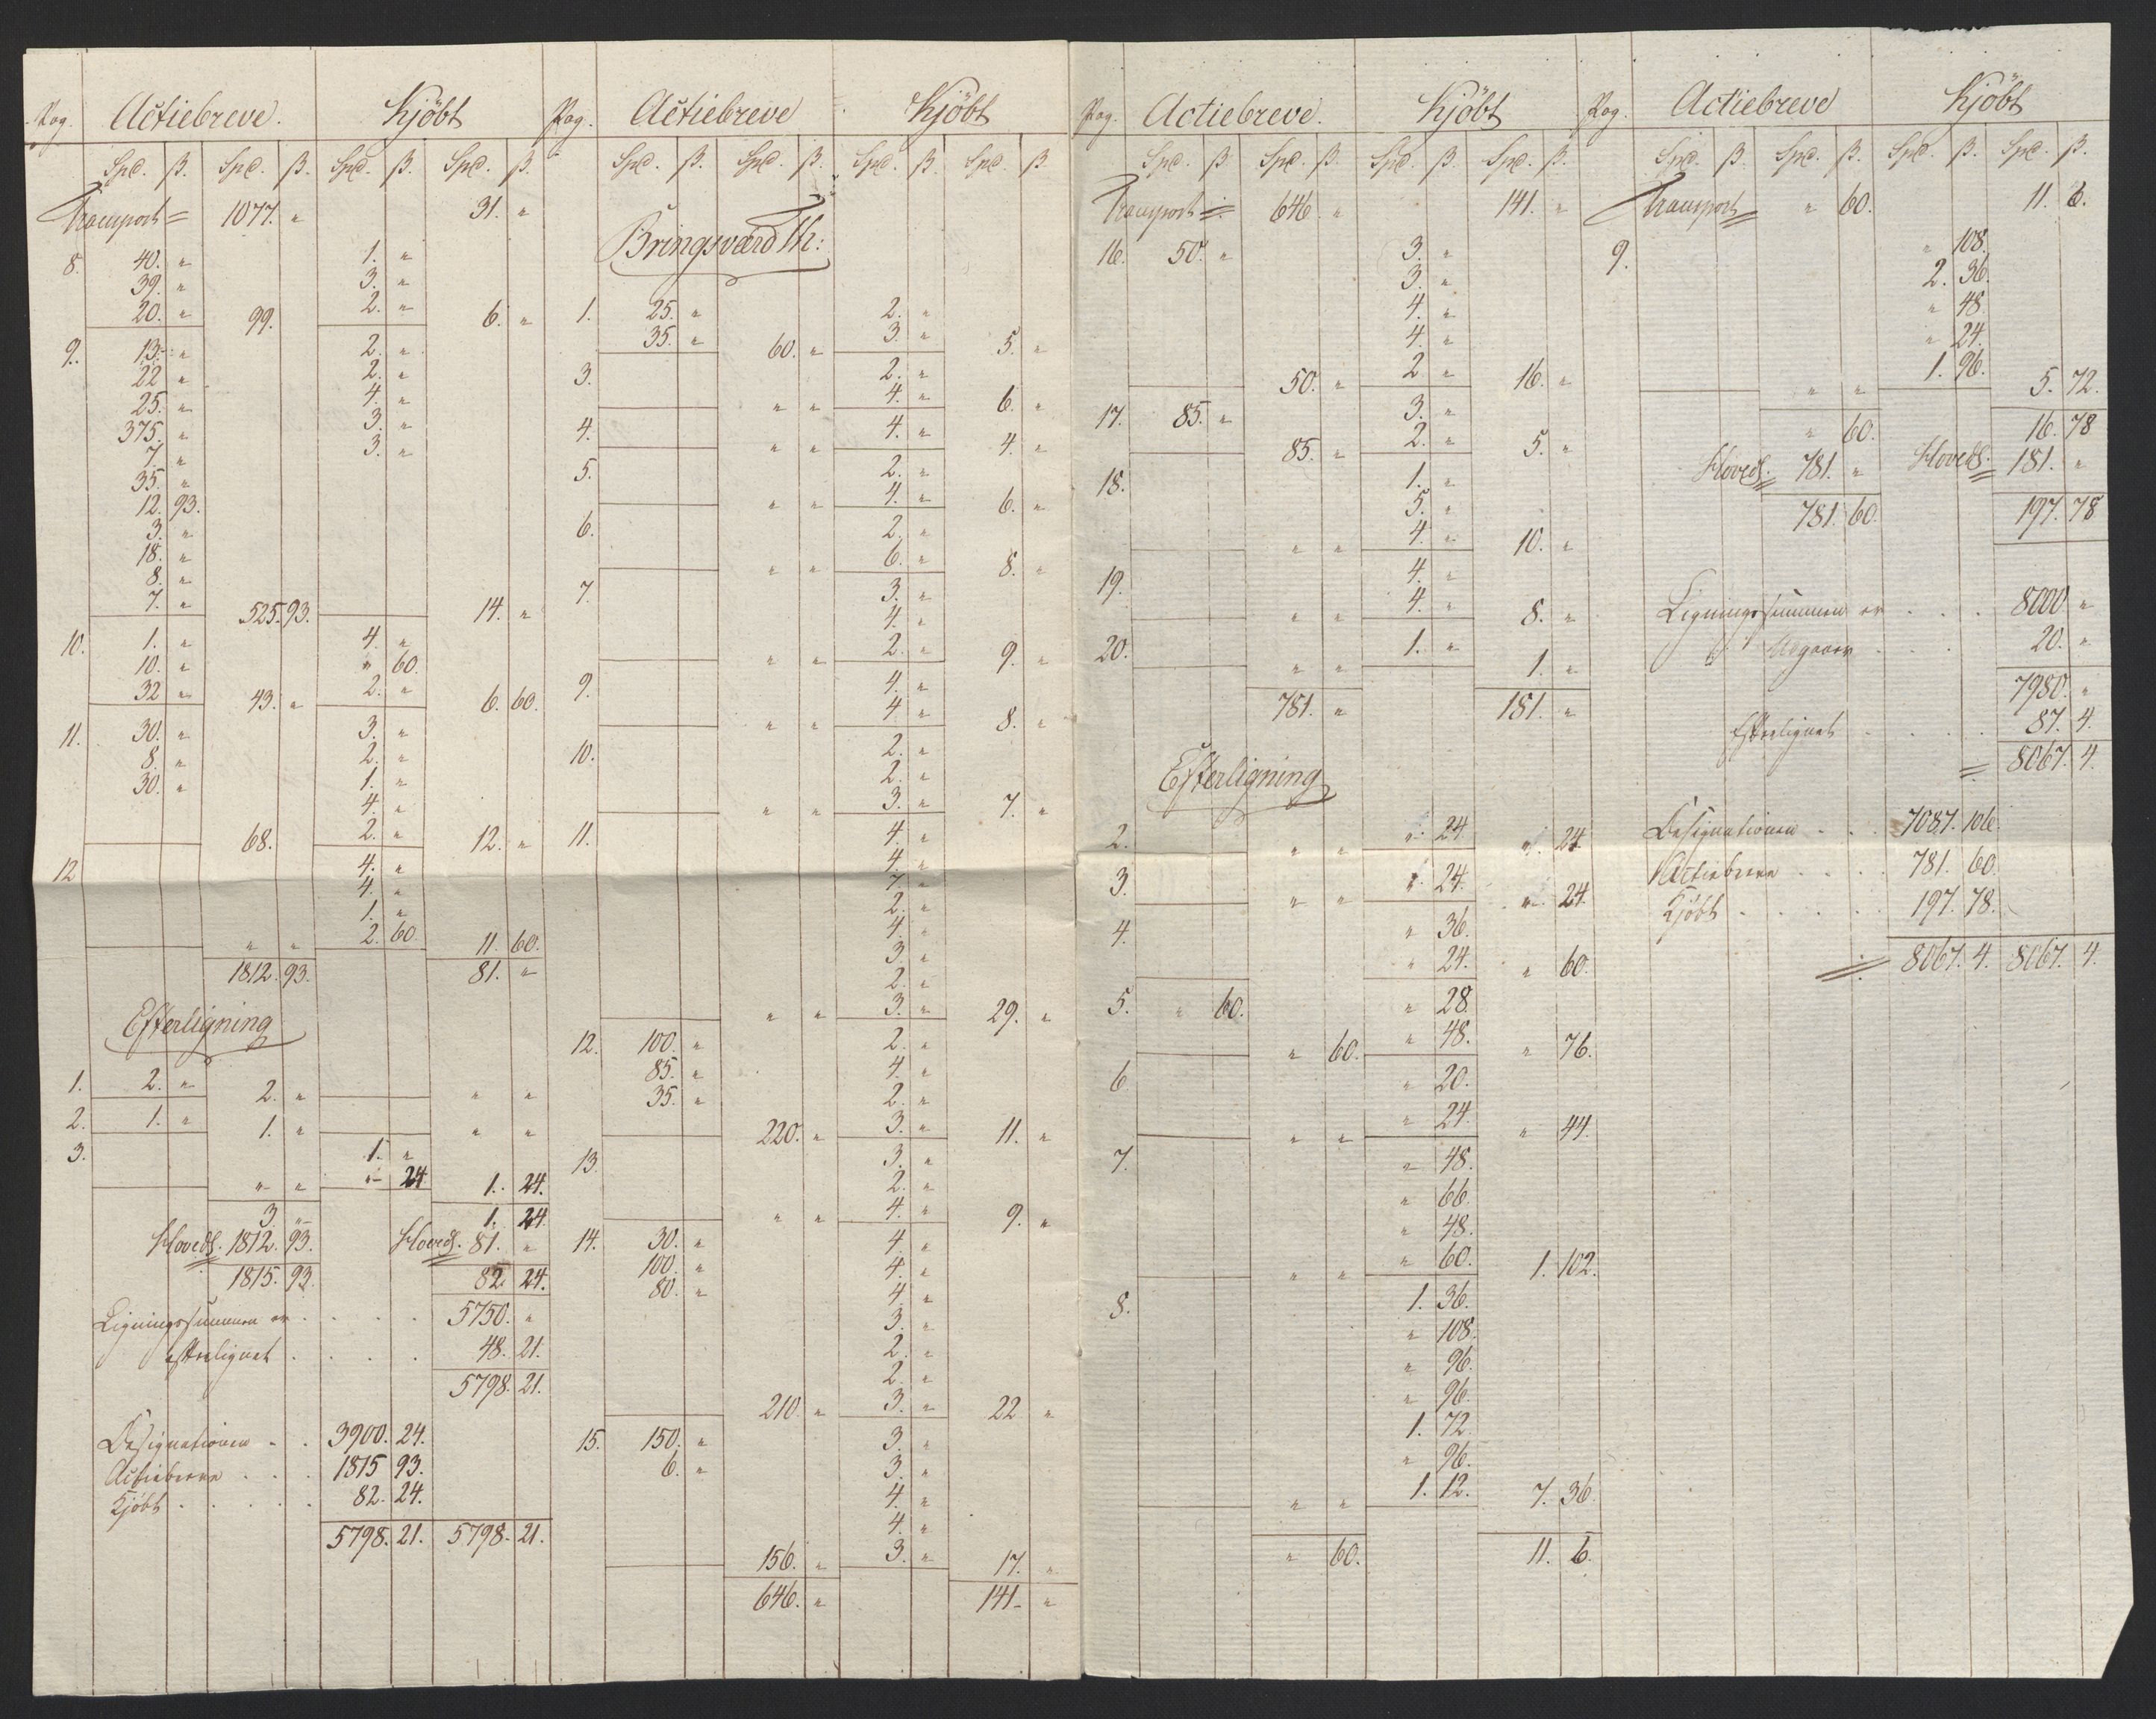 Pag. Actiebreve. Kjöbt
Spd. β. Spd. β. Spd. β. Spd. β.
Transport = 1077. " 31. "
8. 40. " 1. "
39. " 3. "
20. " 99. 2. " 6. "
9. 13. " 2. "
22 " 2. "
25. " 4. "
375. " 3. "
7. " 3. "
35. "
12. 93.
3. "
18. "
8. "
7. " 525. 93. 14. "
10. 1. " 4. "
10. " " 60.
32 " 43. " 2. " 6. 60.
11. 30. " 3. "
8. " 2. "
30. " 1. "
4. "
68. 2. " 12. "
12 4. "
4. "
1. "
" " 2. 60 11. 60.
1812. 93. 81. "
Efterligning
1. 2. " 2. " " "
2. 1. " 1. " " "
3. 1. "
" " " 24 1. 24.
3. " 1. 24.
Hoveds. 1812. 93. Hoveds. 81. "
1815. 93. 82. 24.
Ligningssummen er . . . . 5750. "
efterlignet . . . . 48. 21.
5798. 21.
Designationen . . 3900. 24.
Actiebreve . . . 1815 93.
Kjöbt . . . . . 82. 24.
5798. 21. 5798. 21.
Pag. Actiebreve Kjöbt
Spd. β. Spd. β. Spd. β. Spd. β.
Bringsværd Th:
1. 25. " 2. "
35. " 60. " 3. " 5. "
3. 2. "
" " 4. " 6. "
4. " " 4. " 4. "
5. 2. "
" " 4. " 6. "
6. 2. "
" " 6. " 8. "
7. 3. "
4. "
" " 2. " 9. "
9. 4. "
" " 4. " 8. "
10. 2. "
2. "
" " 3. " 7. "
11. 4. "
4. "
7. "
2. "
4. "
3. "
2. "
" " 3. " 29. "
12. 100. " 2. "
85. " 4. "
35. " 2. "
220. " 3. " 11. "
13. 3. "
2. "
" " 4. " 9. "
14. 30. " 4. "
100. " 4. "
80. " 4. "
3. "
2. "
2. "
210. " 3. " 22 "
15. 150. " 3. "
6. " 3. "
4. "
4. "
156. " 3. " 17. "
646. " 141. "
Pag. Actiebreve. Kjöbt
Spd. β. Spd. β. Spd. β. Spd. β.
Transport = 646 " 141. "
16. 50. " 3. "
3. "
4. "
4. "
50. " 2 " 16. "
17. 85. " 3. "
85. " 2. " 5. "
18. 1. "
5. "
" " 4. " 10. "
19. 4. "
" " 4. " 8. "
20. " " 1. " 1. "
781. " 181. "
Efterligning
2. " " " 24. " 24
3. " " " 24. " 24.
4. " 36.
" 24. " 60.
5. " 60. " 28.
" 60. " 48. " 76.
6 " 20.
" " " 24. " 44.
7. " 48.
" 66.
" 48.
" " " 60. 1. 102.
8. 1. 36.
" 108.
" 96.
" 96.
1. 72.
" 96.
" " 1. 12. 7. 36.
" 60. 11. 6.
Pag. Actiebreve Kjöbt
Spd. β. Spd. β. Spd. β. Spd. β.
Transport = " 60. 11. 6.
9. " 108.
2. 36.
" 48.
" 24.
" " 1. 96. 5. 72.
" 60. 16. 78
Hoveds. 781. " Hoveds. 181. "
781. 60. 197. 78
Ligningssummen er . . . 8000 "
Afgaaer . . . 20. "
7980. "
Efterlignet . . . . 87. 4.
= 8067. 4.
Designationen . . . 7087. 106.
Actiebreve . . . . 781. 60.
Kjöbt . . . . . 197. 78.
= 8067. 4. 8067. 4.